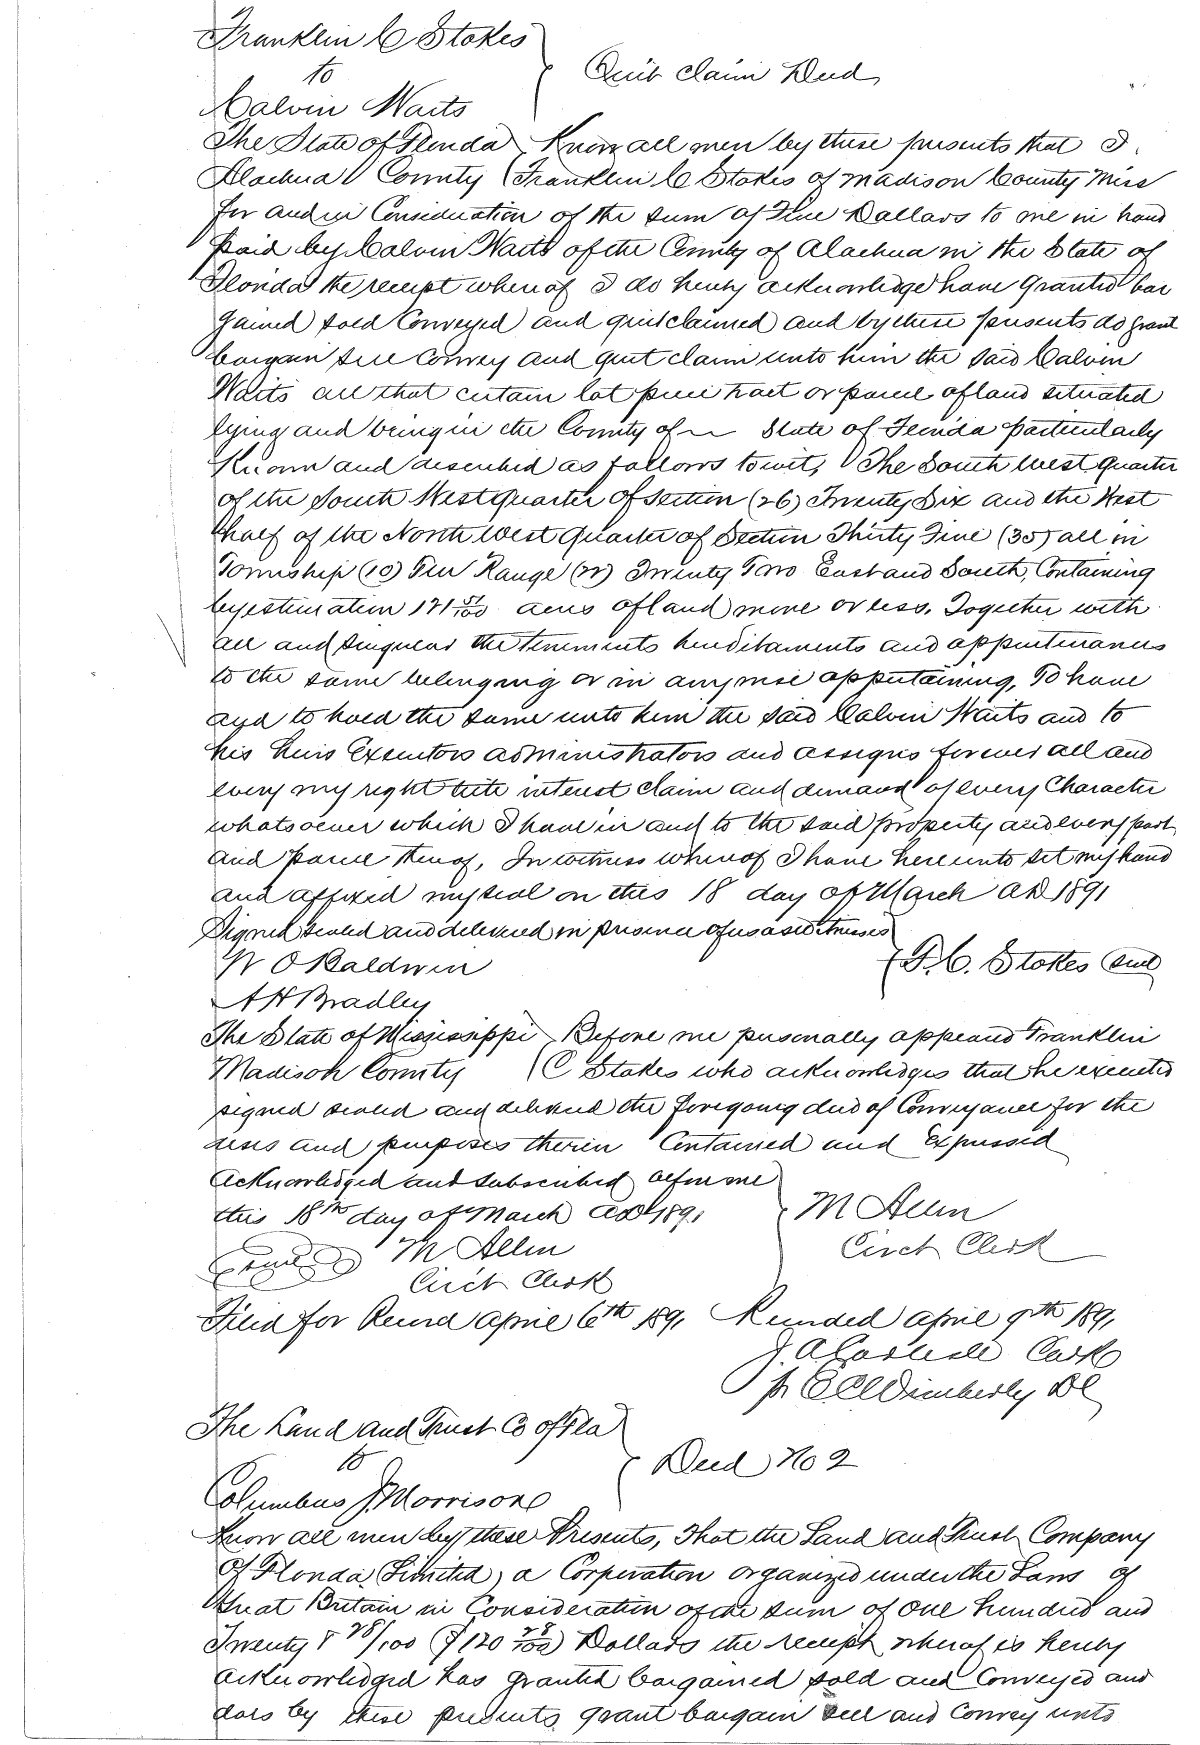 Franklin C Stokes
to
Quit Claim Deed
Calvin Waits
The State of Florida Know all men by these presents that I
Alachua County Franklin C Stokes of Madison County Miss
for and in Consideration of the sum of Five Dollars to me in hand
paid by Calvin Waits of the County of Alachua in the State of
Florida the receipt whereof I do hereby acknowledge have granted bar
gained sold Conveyed and quitclaimed and by these presents do grant
bargain sell Convey and quit claim unto him the said Calvin
Waits all that certain lot piece tract or parcel of land situated
lying and being in the County of — State of Florida particularly
Known and described as follows to wit, The South West Quarter
of the South West quarter of Section (26) Twenty Six and the West
half of the North West Quarter of Section Thirty Five (35) all in
Township (10) Ten Range (22) Twenty Two East and South, Containing
by estimation 121 51/100 acres of land more or less. Together with
all and singular the tenements hereditaments and appurtenances
to the same belonging or in anywise appertaining, To have
and to hold the same unto him the said Calvin Waits and to
his heirs Executors administrators and assigns forever all and
every my right title interest claim and demand of every Character
whatsoever which I have in and to the said property and every part
and parcel thereof, In witness whereof I have hereunto set my hand
and affixed my seal on this 18 day of March AD 1891
Signed sealed and delivered in presence of us as witnesses
W O Baldwin F. C. Stokes Seal
A H Bradley
The State of Mississippi Before me personally appeared Franklin
Madison County C Stokes who acknowledges that he executed
signed sealed and delivered the foregoing deed of Conveyance for the
uses and purposes therein Contained and Expressed
Acknowledged and subscribed before me
this 18th day of March AD 1891 M Allen
Seal M Allen Circt Clerk
Circt Clerk
Filed for Record April 6th 1891 Recorded April 9th 1891
J. A. Carlisle Clerk
pr E C Wimberly DC
The Land and Trust Co of Fla
to Deed No 2
Columbus J. Morrison
Know all men by these Presents, That the Land and Trust Company
Of Florida (Limited) a Corporation organized under the Laws of
Great Britain in Consideration of the sum of One hundred and
Twenty & 28/100 ($120 28/100) Dollars the receipt whereof is hereby
acknowledged has granted bargained sold and Conveyed and
does by these presents grant bargain sell and Convey unto